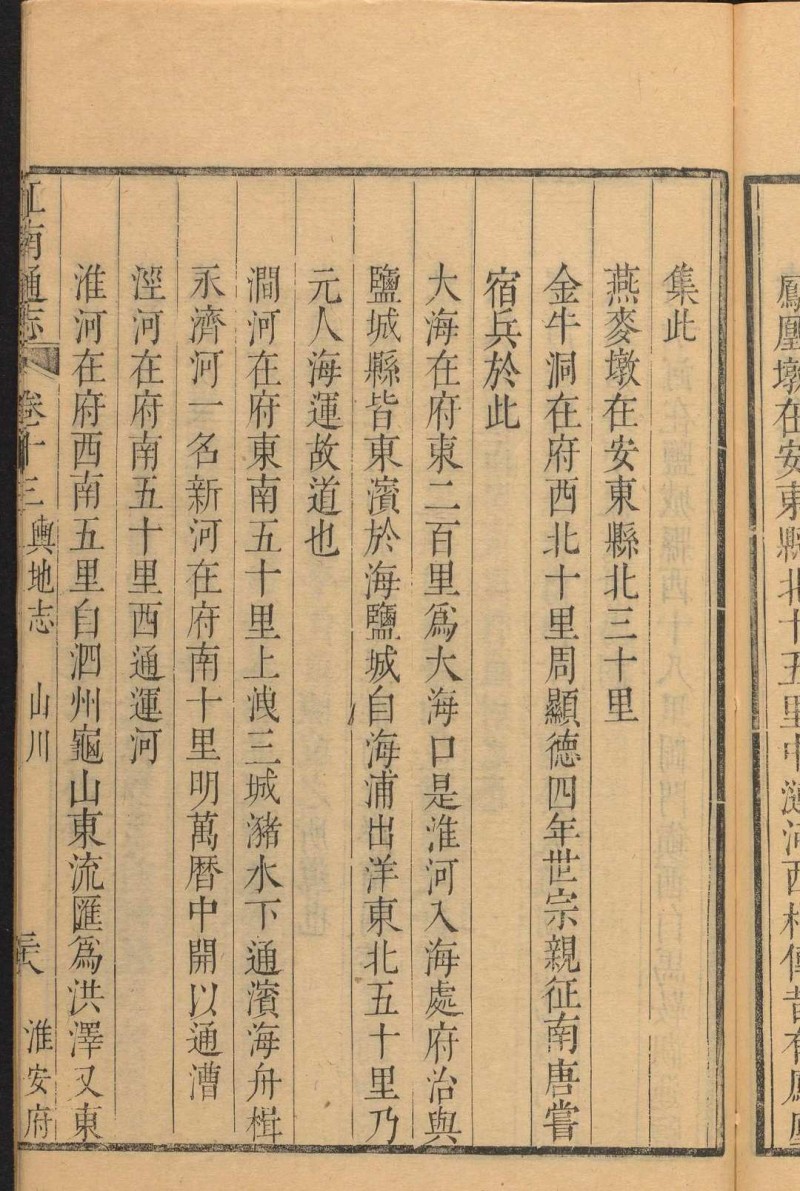 鳳凰墩在安東縣北十五里中漣河西相傳昔有鳳凰
集此
燕麥墩在安東縣北三十里
金牛洞在府西北十里周顯德四年世宗親征南唐嘗
宿兵於此
大海在府東二百里爲大海口是淮河入海處府治與
鹽城縣皆東濱於海鹽城自海浦出洋東北五十里乃
元人海運故道也
澗河在府東南五十里上洩三城瀦水下通濱海舟楫
永濟河一名新河在府南十里明萬曆中開以通漕
涇河在府南五十里西通運河
淮河在府西南五里自泗州龜山東流匯爲洪澤又東
江南通志 卷十三 輿地志 山川 三六 淮安府